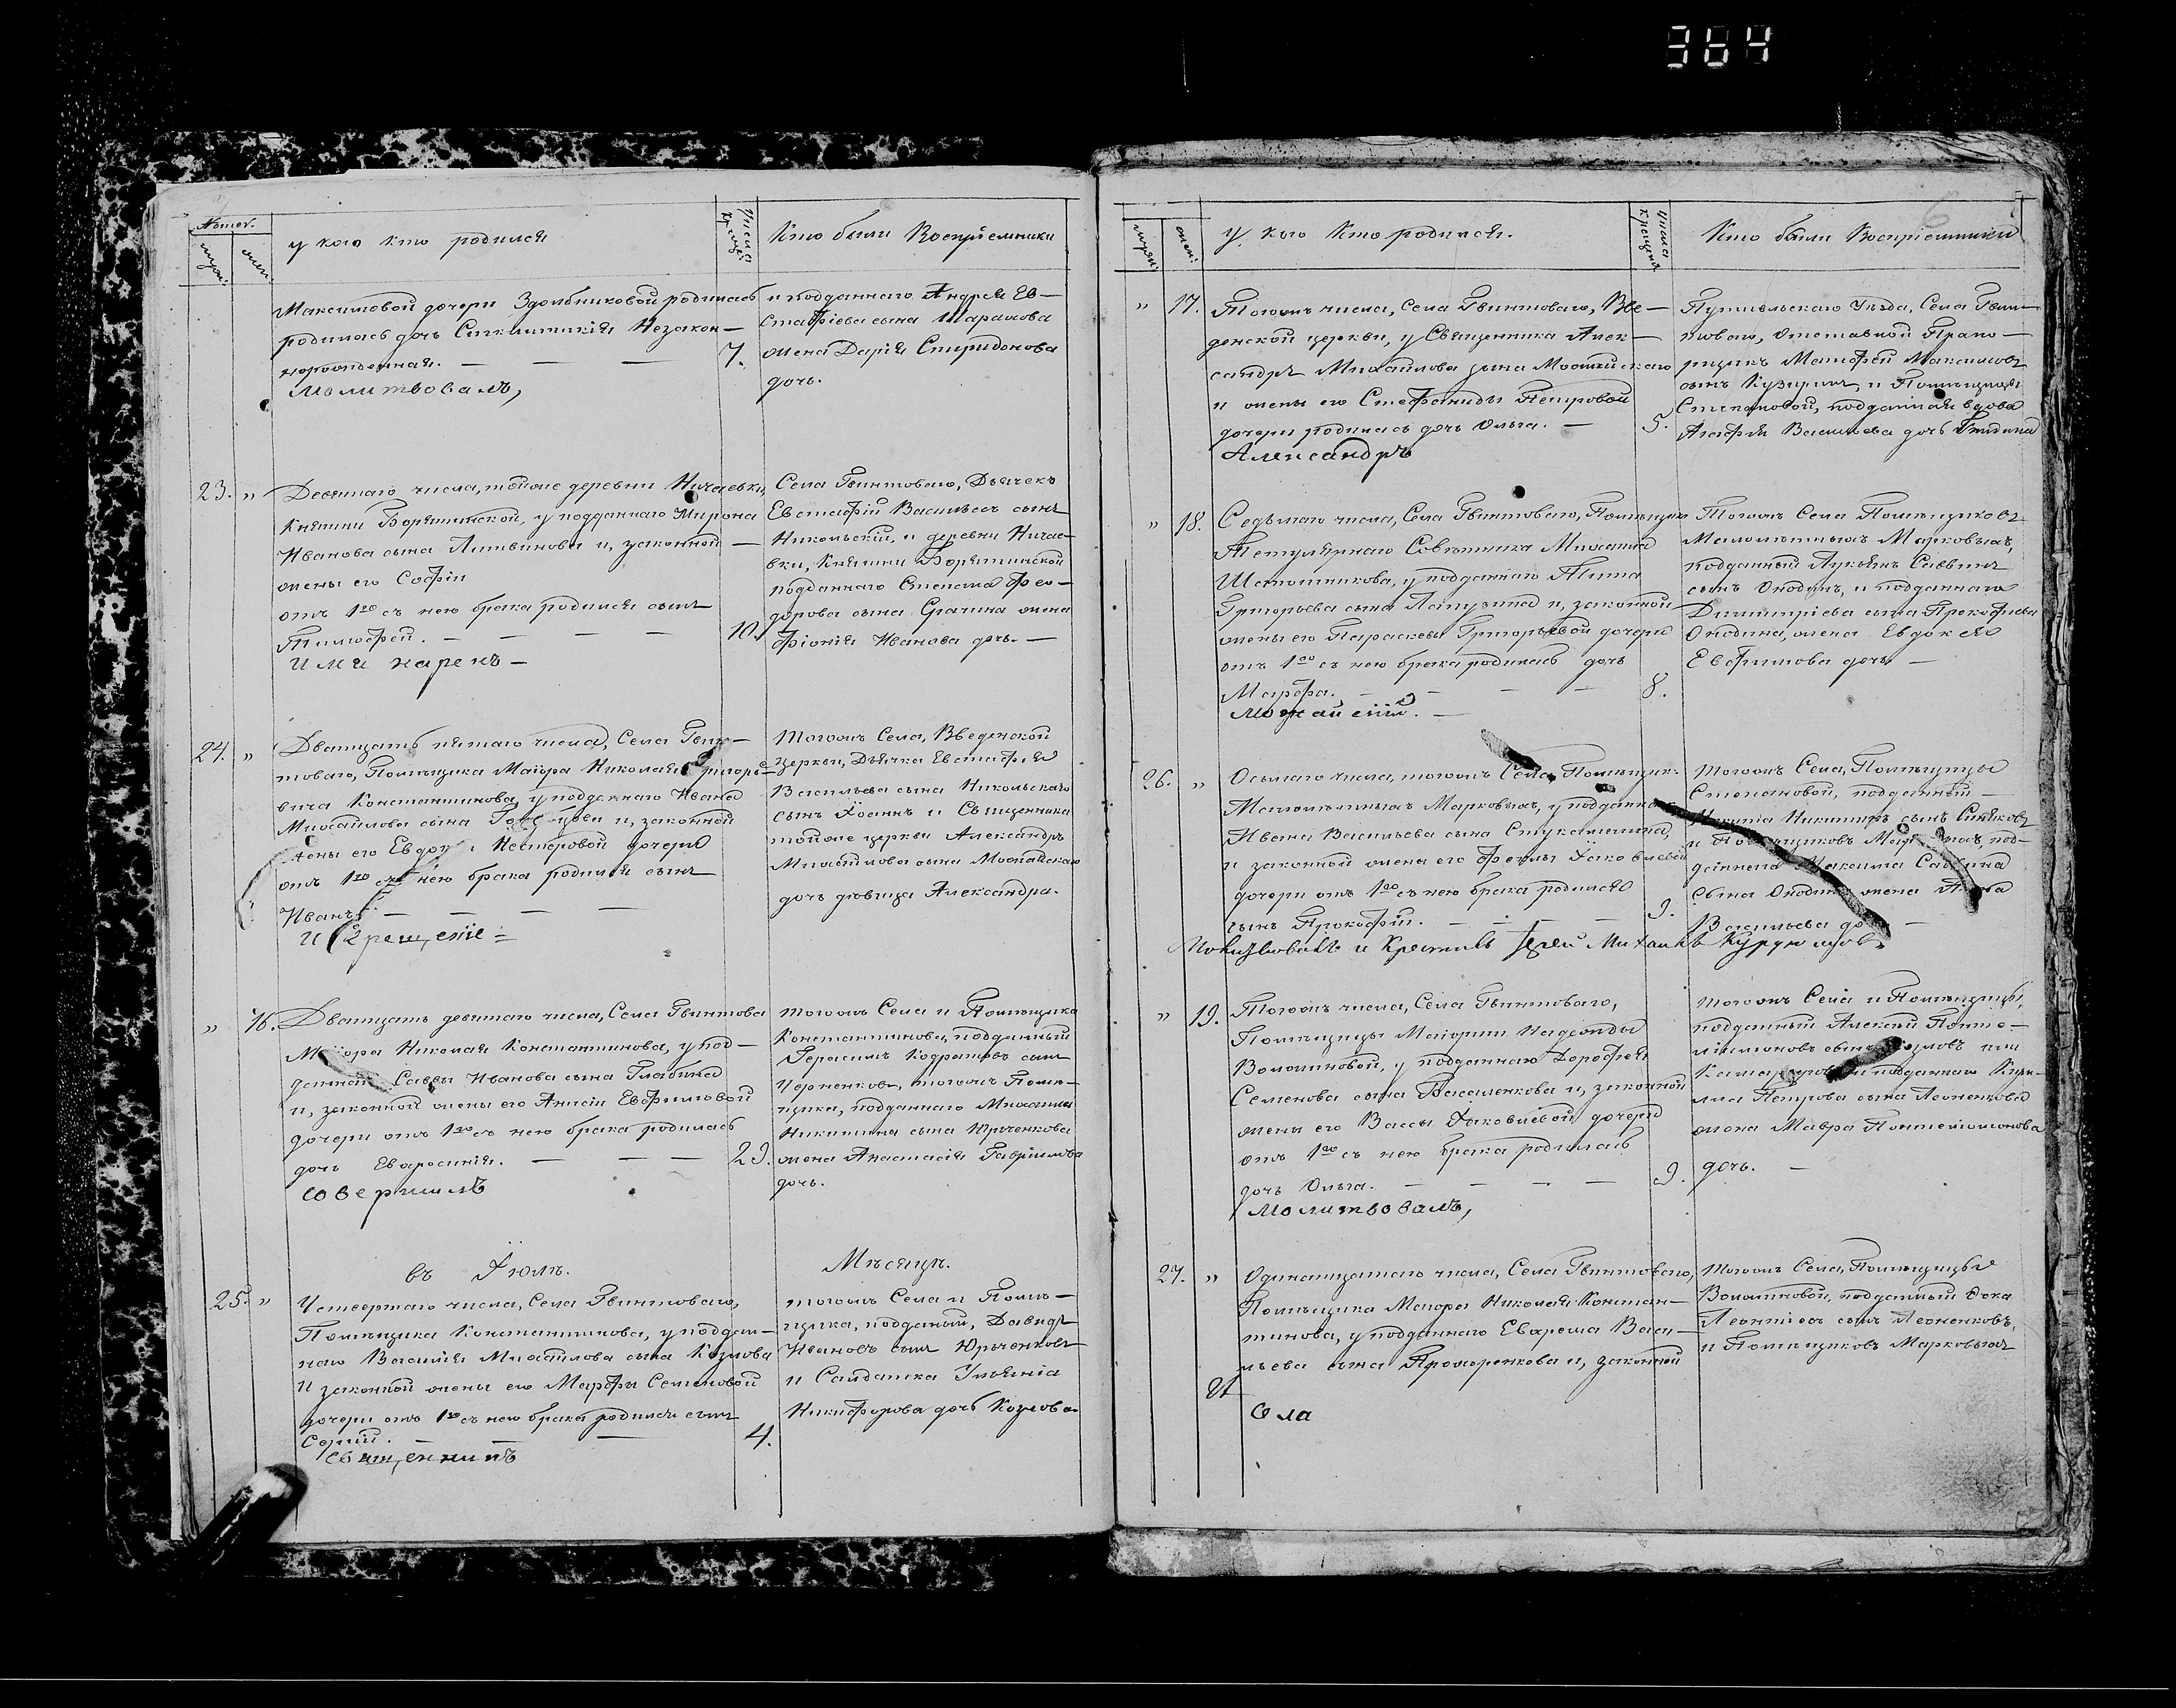 364
Номер.
муж:
жен:
у кого кто родился
Числа крещен:
Кто были Восприемники
Максимовой дочери Здолбниковой родилась
родилась дочь Незакон—
норожденная. — — — 7.
Молитвовалъ,
и подданнаго Андрея Ев—
стафіева сына Шарапова
жена Дарія Спиридонова
дочь.
23. „ Девятаго числа, тойже деревни Ничаевки,
Княгини Борятинской, у подданнаго Мирона
Иванова сына Литвинова и, законной —
жены его Софіи
отъ 1го съ нею брака родился сынъ
Тимофей. — — — — 10.
Имя нарекъ —
Села Гвинтоваго, Дьячекъ
Евстафій Васильевъ сынъ
Никольскій, и деревни Ничае-
вки, Княгини Борятинской
подданнаго Степана Фео—
дорова сына жена
Фіонія Иванова дочь. —
24. „ Дватцать пятаго числа, Села Гвин—
товаго, Помѣщика Маіора Николая Григорь-
вича Константинова, у подданнаго Ивана
Михайлова сына и, законной
жены его Нестеровой дочери
отъ 1го съ нею брака родился сынъ
Иванъ. — — — —
И Крещеніе =
тогожъ Села, Введенской
церкви, Дьячка Евстафія
Васильева сына Никольскаго
сынъ Іоаннъ и Священника
тойже церкви Александра
Михайлова сына Можайскаго
дочь дѣвица Александра.
„ 16. Дватцать девятаго числа, Села Гвинтова
Маіора Николая Константинова, у под—
даннаго Саввы Иванова сына
и, законной жены его Анисіи Евфимовой
дочери отъ 1го съ нею брака родилась
дочь Евфросинія. — — — 29.
совершилъ
тогожъ Села и Помѣщика
Константинова, подданный
Герасимъ Кодратовъ сынъ
тогожъ Помѣ—
щика, подданнаго Михаила
Никитина сына Юрченкова
жена Анастасія Гавріилова
дочь.
въ Іюлѣ. Мѣсяцѣ.
25. „ Четвертаго числа, Села Гвинтоваго,
Помѣщика Константинова, у поддан—
наго Василія Михайлова сына Козлова
и законной жены его Марфы Семеновой
дочери отъ 1го съ нею брака родился сынъ
Сергій. — — — 4.
Священникъ
тогожъ Села и Помѣ—
щика, подданый, Давидъ
Ивановъ сынъ Юрченковъ
и Салдатка Ульянія
Никифорова дочь Козлова
муж:
жен:
у кого Кто родился.
Числа крещенія
Кто были Восприемники
„ 17. Тогожъ числа, Села Гвинтоваго, Вве—
денской церкви, у Священника Алек—
сандра Михайлова сына Можайскаго
и жены его Стефаниды Петровой
дочери родилась дочь Ольга. — 5.
Александръ
Путивльскаго Уѣзда, Села Гвин—
товаго, Отставной Прапо—
рщикъ Матфей Максимовъ
сынъ и Помѣщицы
Степановой, подданная вдова
Агафія Васильева дочь
„ 18. Седьмаго числа, Села Гвинтоваго, Помѣщика
Титулярнаго Совѣтника Михаила
у подданнаго Тита
Григорьева сына и, законной
жены его Параскевы Григорьевой дочери
отъ 1го съ нею брака родилась дочь
Марфа. — — — — 8.
Можайскій. —
Тогожъ Села Помѣщиковъ
Малолѣтныхъ Марковыхъ,
подданный Лукьянъ Саввинъ
сынъ Онодинъ, и подданнаго
Димитріева сына Прокофіева
Онодина, жена Евдокея
Евфимова дочь —
26. „ Осьмаго числа, тогожъ Села, Помѣщик:
Малолѣтныхъ Марковыхъ, у подданнаго
Ивана Васильева сына
и законной жены его Феклы Іаковлевой
дочери отъ 1го съ нею брака родился
сынъ Прокофій. — — — — 9.
Молитвовалъ и Крестилъ Іерей Михаилъ
тогожъ Села, Помѣщицы
Степановой, подданной —
Никита Никитинъ сынъ
и Помѣщиковъ под—
даннаго Максима Саввина
сына Онодина жена
Васильева дочь —
„ 19. Тогожъ числа, Села Гвинтоваго,
Помѣщицы Маіорши Надежды
Воложиновой, у подданнаго Дорофея
Семенова сына и, законной
жены его Вассы Іаковлевой дочери
отъ 1го съ нею брака родилась
дочь Ольга. — — — — 9.
Молитвовалъ,
тогожъ Села и Помѣщицы,
подданный Алексѣй Понте—
лимоновъ сынъ или
подданнаго Кири—
лла Петрова сына Леоненкова
жена Мавра Понтелимонова
дочь. —
27. „ Одинатцатаго числа, Села Гвинтоваго,
Помѣщика Маіора Николая Констан—
тинова, у подданнаго Евареста Васи—
льева сына и, законной
И
Ола
тогожъ Села, Помѣщицы
Воложиновой, подданной Фока
Леонтіевъ сынъ Леоненковъ,
и Помѣщиковъ Марковыхъ